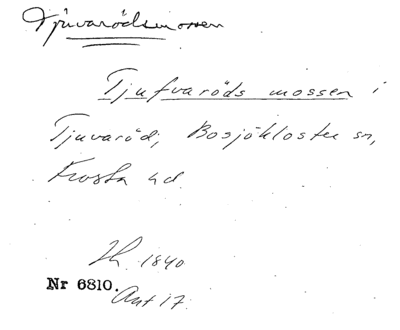 Tjuvarödsmossen
Tjufvaröds mossen i
Tjuvaröd, Bosjökloster sn,
Frosta hd.
1840
Nr 6810.
Ant 17.